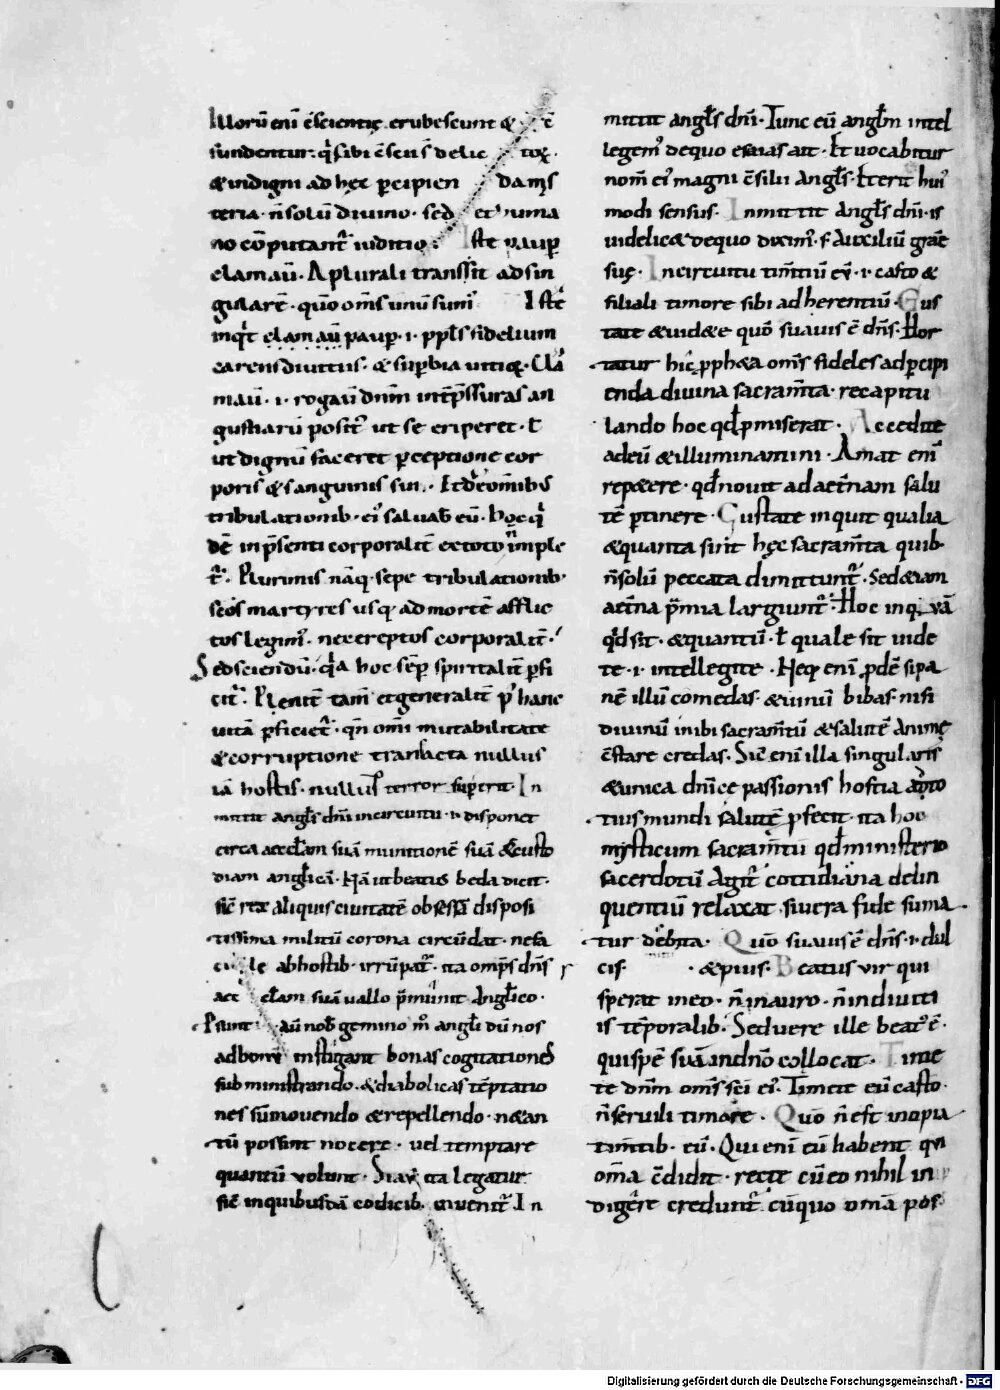 Illorū eni c̄scientię erubescunt & ē
fundentur. q̄ sibi c̄scii s̄ delic tox̄.
& indigni ad hęc percipien da mys
teria. n̄ solū divino. sed et huma
no cōputant̄ iuditio. Iste paup̄
clamaū. A plurali transs̄it ad sin
gularē. quō om̄s unū sum̄. Istē
inq̄t clamaū paup̄. i. ppl̄s fidelium
carens divitiis. & sup̄bia vitiq;. Cla
maū. i. rogaū dn̄m int̄ p̄ssuras an
gustiarū posit̄ ut se eriperet. ł
ut dignū faceret p̄ceptione cor
poris & sanguinis sui. Et de omnibus
tribulationib. ei salvaƀ eū. hoc q̄
dē in p̄senti corporalit̄ ex toto n̄ imple
t̄. Plurimis nāq. sepe tribulationib.
scōs martyres usq. ad mortē afflic
tos legim̄. nec ereptos corporalit̄.
Sed sciendū. q̄a hoc sēp spiritalit̄ p̄fi
cit̄. Plenit̄ tam̄ et generalit̄ p̄ hanc
vitā p̄ficiet̄. qn̄ omi mutabilitate
& corruptione transacta nullus
iā hostis. nullus terror sup̄erit. In
mittit angl̄s dn̄i in circuitu. i. disponet
circa accl̄am suā munitionē suā & custo
diam anglicā. Nā ut beatus beda dicit.
sic̄ rex aliquis civitatē obsessā disposi
tissima militū corona circūdat. ne fa
ci le ab hostib. irrūpat̄. ita omp̄s dn̄s
acc clam suā vallo p̄munit anglico.
P̄sunt aū nob̄ gemino m̄ angli dū nos
ad bonū instigant bonas cogitationes
subministrando. & diabolicas tēptatio
nes sūmovendo & repellendo. ne an
tū possint nocere. vel temptare
quantū volunt. Siav̄ ita legatur
sic̄ in quibusdā codicib. invenit̄. In
mittit angl̄s dn̄i. Tunc eū angl̄m intel
legem̄ de quo esaias ait. Et vocabitur
nom̄ ei magni c̄silii angl̄s. Et erit hui
modi sensus. Inmittit angl̄s dn̄i. is
videlic& de quo dixim̄. s. auxiliū grae
suę. In circuitu tim̄tiū eū. i. casto &
filiali timore sibi adherentiū. Gus
tate & vid&e quō suavis ē dn̄s. Hor
tatur hic p̄ph&a om̄s fideles ad p̄cipi
enda divina sacram̄ta. recapitu
lando hoc qd̄ p̄miserat. Accedite
ad eū & illuminamini. Amat eni
rep&ere. qd̄ novit ad aet̄nam salu
tē p̄tinere. Gustate inquit qualia
& quanta sint hęc sacram̄ta quib.
n̄ solū peccata dimittunt̄. Sed &iam
aet̄na p̄mia largiunt̄. Hoc inq.
qd̄ sit. & quantū. ł quale sit vide
te. i. intellegite. Neq enī p̄dē si pa
nē illū comedas. & vinū bibas. nisi
divinū inibi sacram̄tū & salutē animę
c̄stare credas. Sic̄ eni illa singularis
& unica dn̄icę passionis hostia ad to
tius mundi salutē p̄fecit. ita hoc
mysticum sacram̄tū qd̄ ministerio
sacerdotū agit̄ cottidiana delin
quentiū relaxat. si vera fide suma
tur debita. Quō suavis ē dn̄s. i. dul
cis. & pius. Beatus vir qui
sperat in eo. n̄ in auro. n̄ in diviti
is tēporalib. Sed vere ille beat̄ ē.
qui spē suā in dn̄o collocat. Time
te dn̄m om̄s sci ei. Timete eū casto.
n̄ servili timore. Quō n̄ est inopia
tim̄tib. eū. Qui eni eū habent qui
om̄a c̄didit. recte cū eo nihil in
digere credunt̄. cū quo om̄a pos
Digitalisierung gefördert durch die Deutsche Forschungsgemeinschaft - DFG